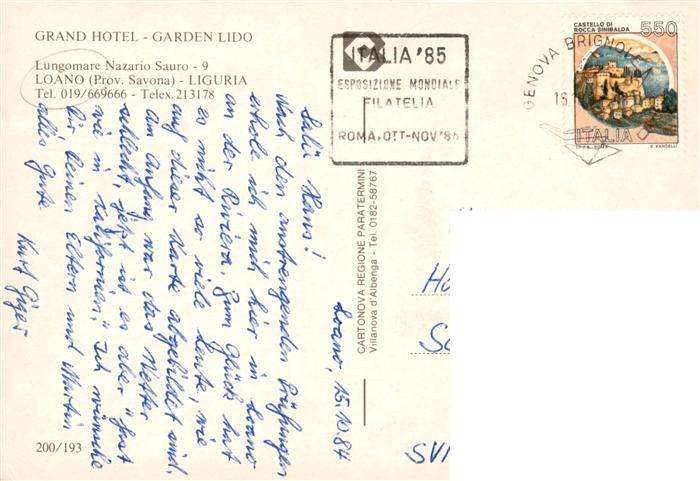 GRAND HOTEL - GARDEN LIDO
Lungomare Nazario Sauro - 9
LOANO (Prov. Savona) - LIGURIA
Tel. 019/669666 - Telex.213178
ITALIA '85
ESPOSIZIONE MONDIALE
FILATELIA
ROMA.OTT-NOV'85
GENOVA BRIGNO
16
CASTELLO DI
ROCCA SINIBALDA
550
ITALIA
E. VANGELLI
CARTONOVA REGIONE PARATERMINI
Villanova d'Albenga - Tel. 0182-58767
Loano, 15.10.84
Salü Hans!
Nach den anstrengenden Prüfungen
erhole ich mich hier in Loano
an der Riviera. Zum Glück hat
es nicht so viele Leute, wie
auf dieser Karte abgebildet sind.
Am Anfang war das Wetter
schlecht, jetzt ist es aber "fast
wie in Kalifornien". Ich wünsche
Dir Deinen Eltern und Martin
alles Gute
Kurt Giger
200/193
SVI